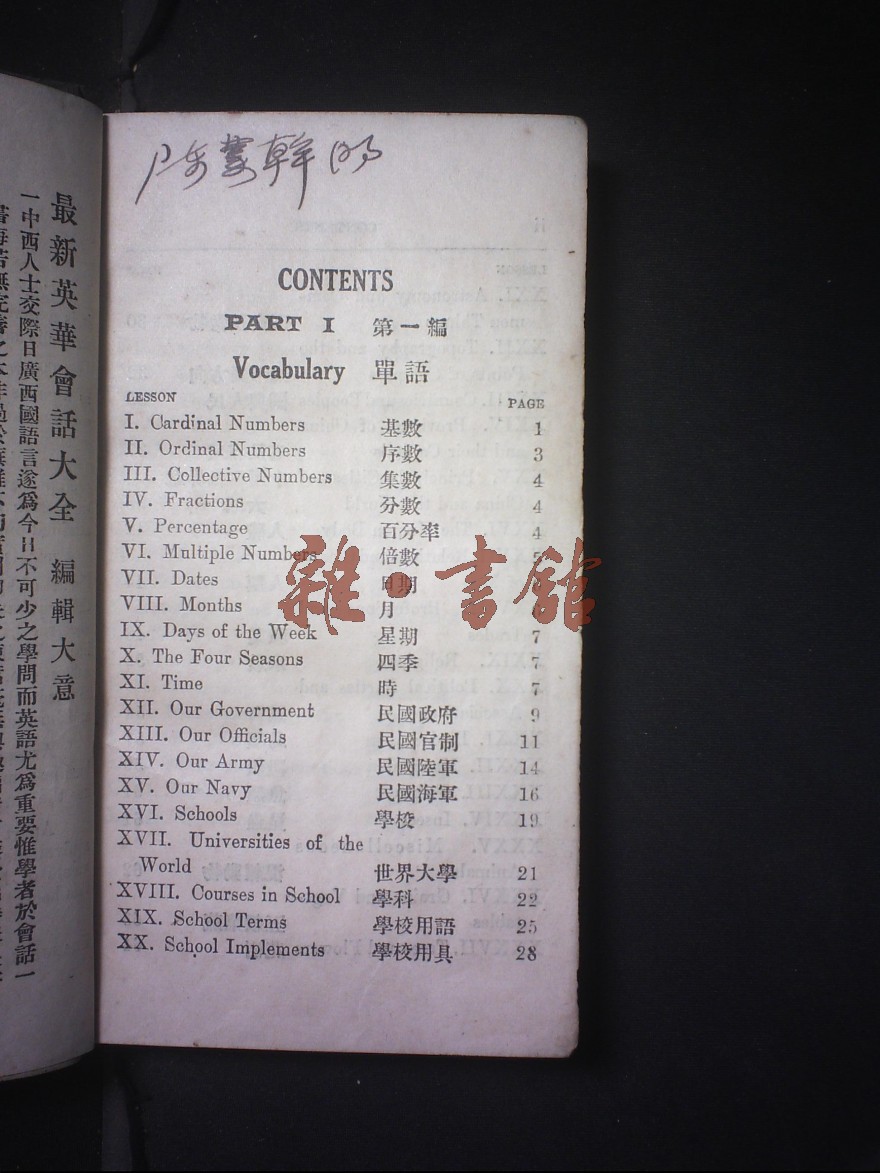 CONTENTS
PART I 第一編
Vocabulary 單語
LESSON PAGE
I. Cardinal Numbers 基數 1
II. Ordinal Numbers 序數 3
III. Collective Numbers 集數 4
IV. Fractions 分數 4
V. Percentage 百分率 4
VI. Multiple Numbers 倍數 5
VII. Dates 日期
VIII. Months 月 6
IX. Days of the Week 星期 7
X. The Four Seasons 四季 7
XI. Time 時 7
XII. Our Government 民國政府 9
XIII. Our Officials 民國官制 11
XIV. Our Army 民國陸軍 14
XV. Our Navy 民國海軍 16
XVI. Schools 學校 19
XVII. Universities of the
World 世界大學 21
XVIII. Courses in School 學科 22
XIX. School Terms 學校用語 25
XX. School Implements 學校用具 28
雜·書館
最新英華會話大全 編輯大意
一中西人士交際日廣西國語言遂爲今日不可少之學問而英語尤爲重要惟學者於會話一